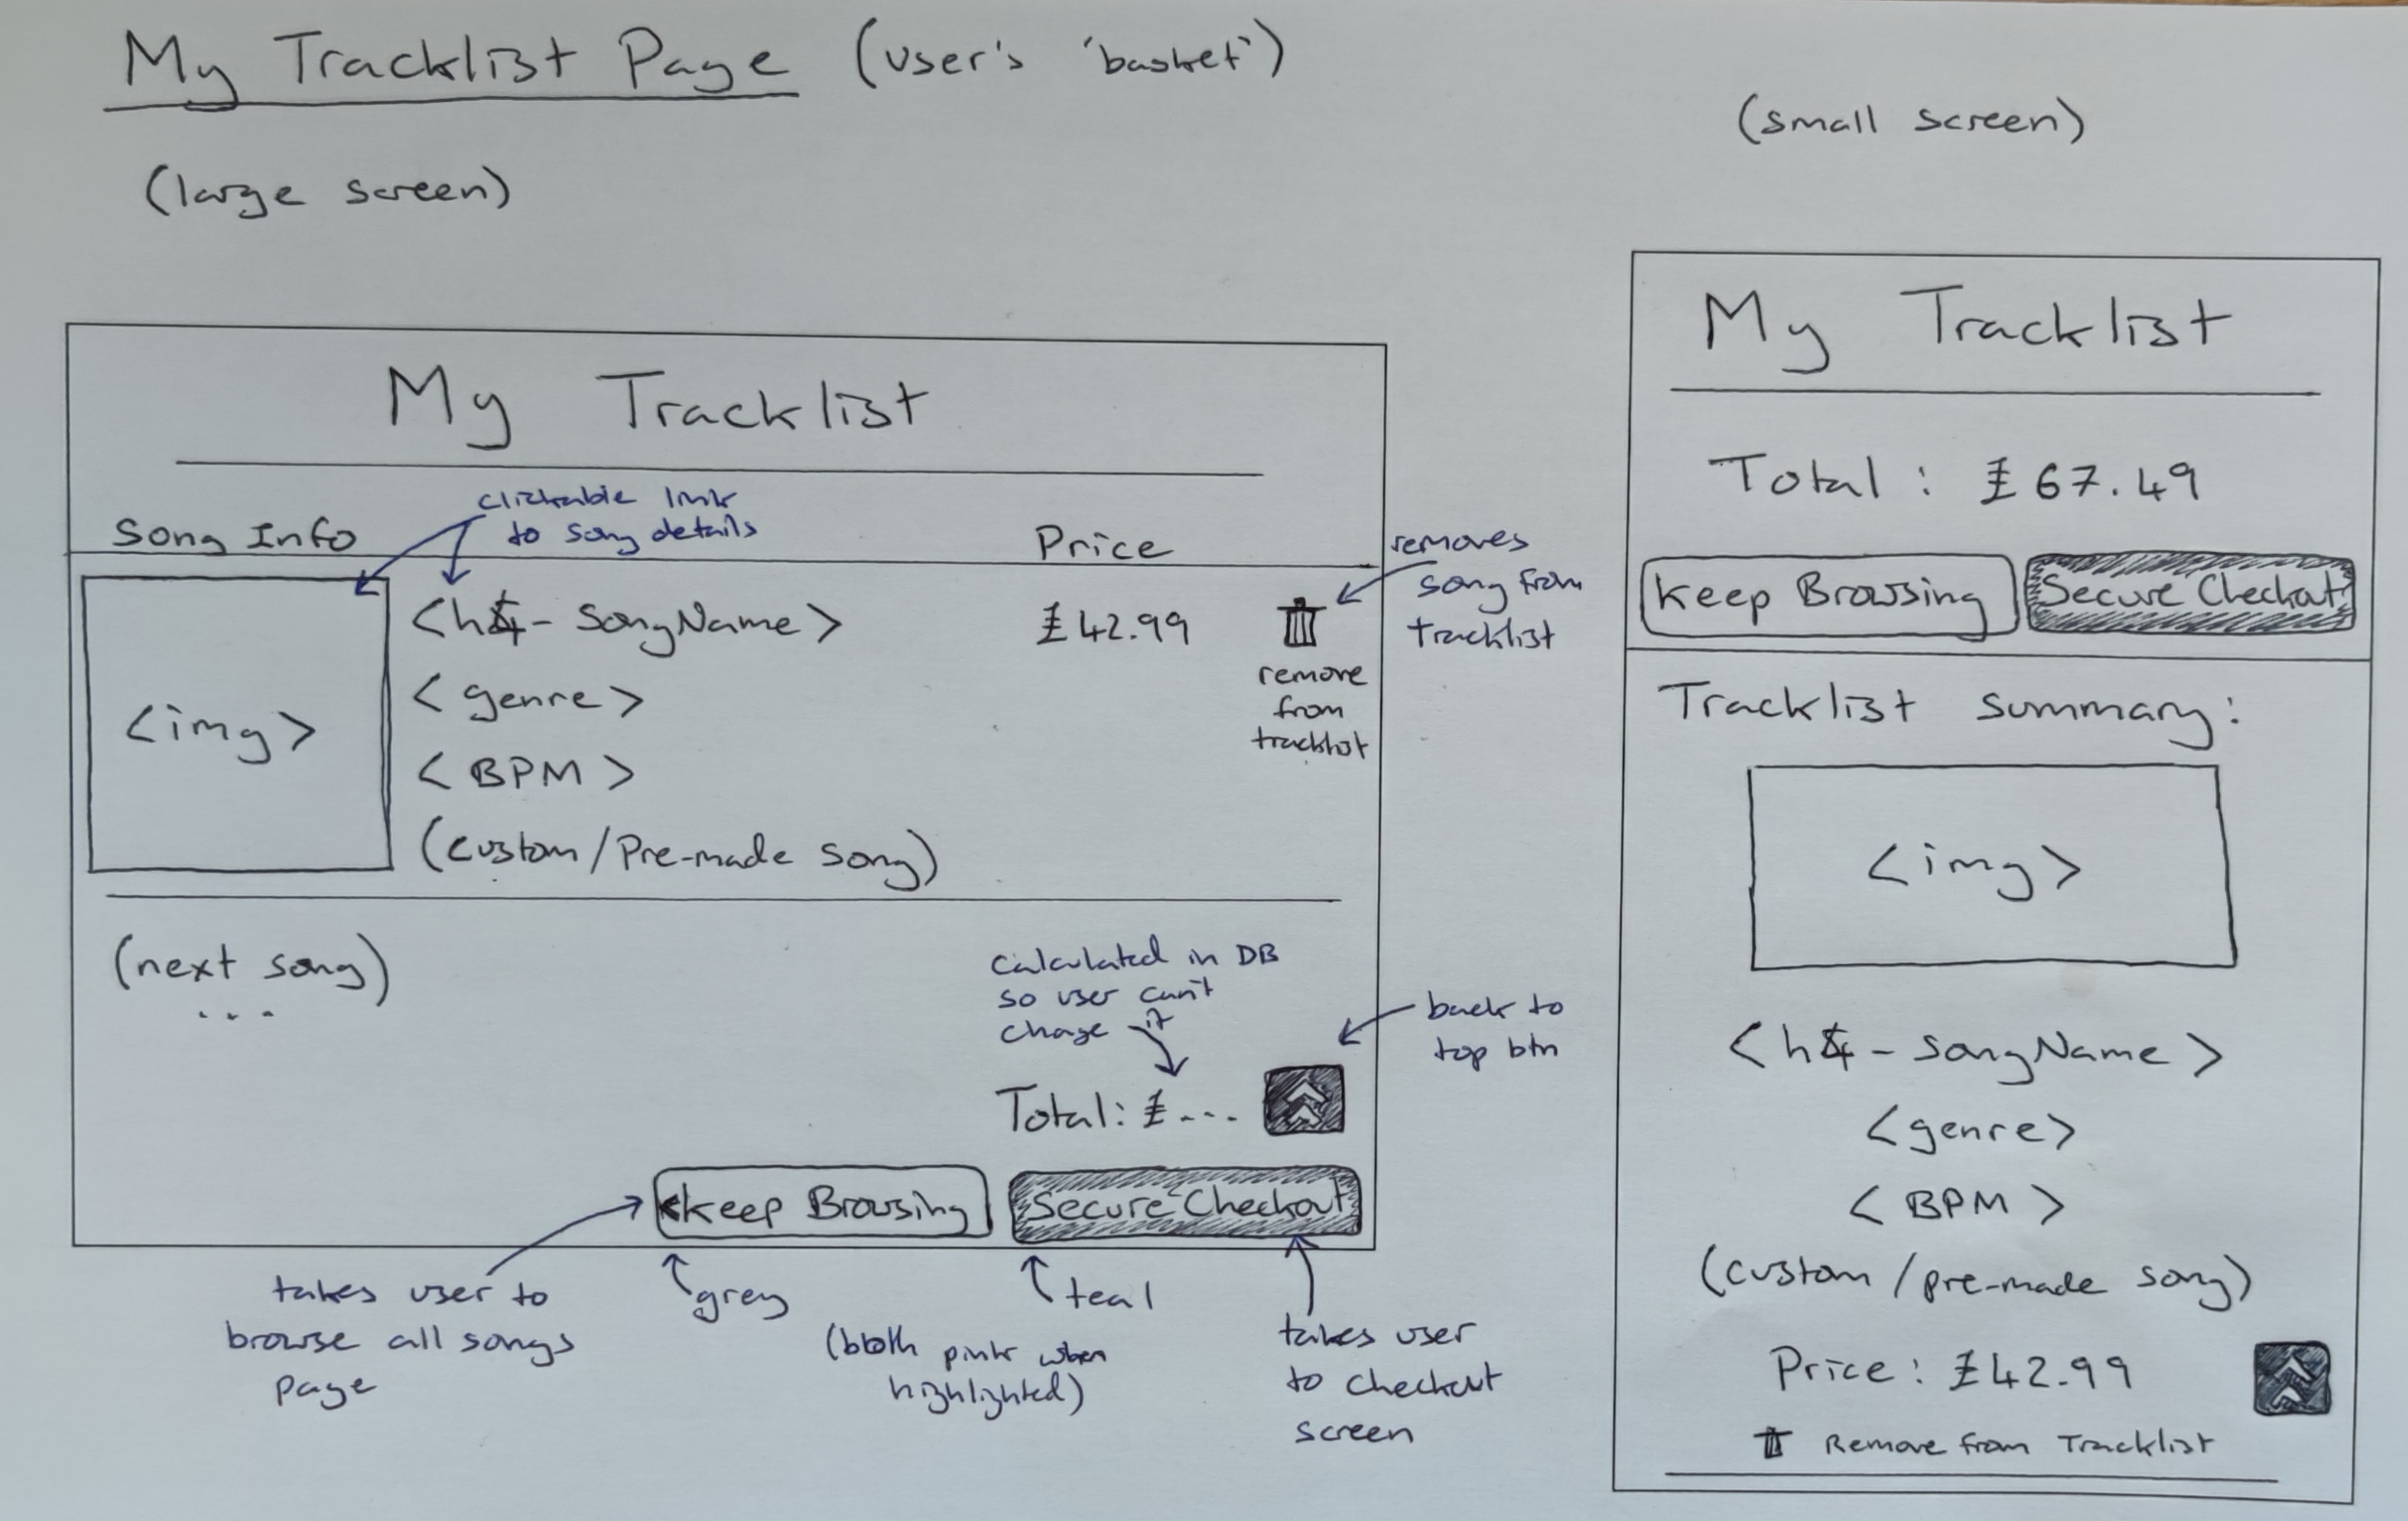 My Tracklist Page (user's 'basket')
(large screen)
My Tracklist
clickable link
to song details
Song Info
Price
<h4 - SongName>
£42.99
<genre>
<BPM>
(custom/Pre-made song)
<img>
remove
from
tracklist
removes
song from
tracklist
(next song)
...
calculated in DB
so user can't
change it
Total: £---
back to
top btn
Keep Browsing
Secure Checkout
takes user to
browse all songs
page
grey
teal
(both pink when
highlighted)
takes user
to checkout
screen
(small screen)
My Tracklist
Total: £67.49
Keep Browsing
Secure Checkout
Tracklist summary:
<img>
<h4 - songName>
<genre>
<BPM>
(custom/pre-made song)
Price: £42.99
Remove from Tracklist